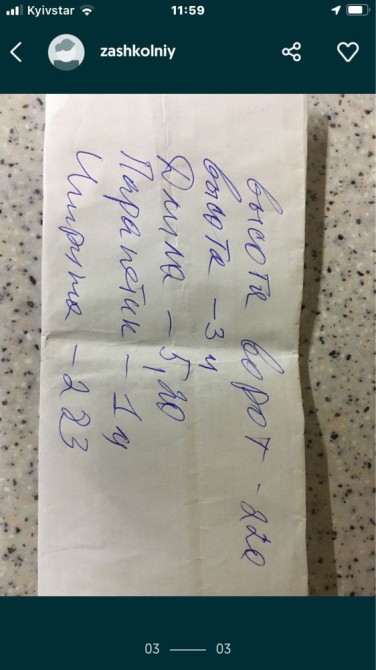 Kyivstar 11:59
zashkolniy
высота ворот - 220
высота - 3 м
Длина - 5,20
Парапетик - 1 м
Ширина - 223
03 03